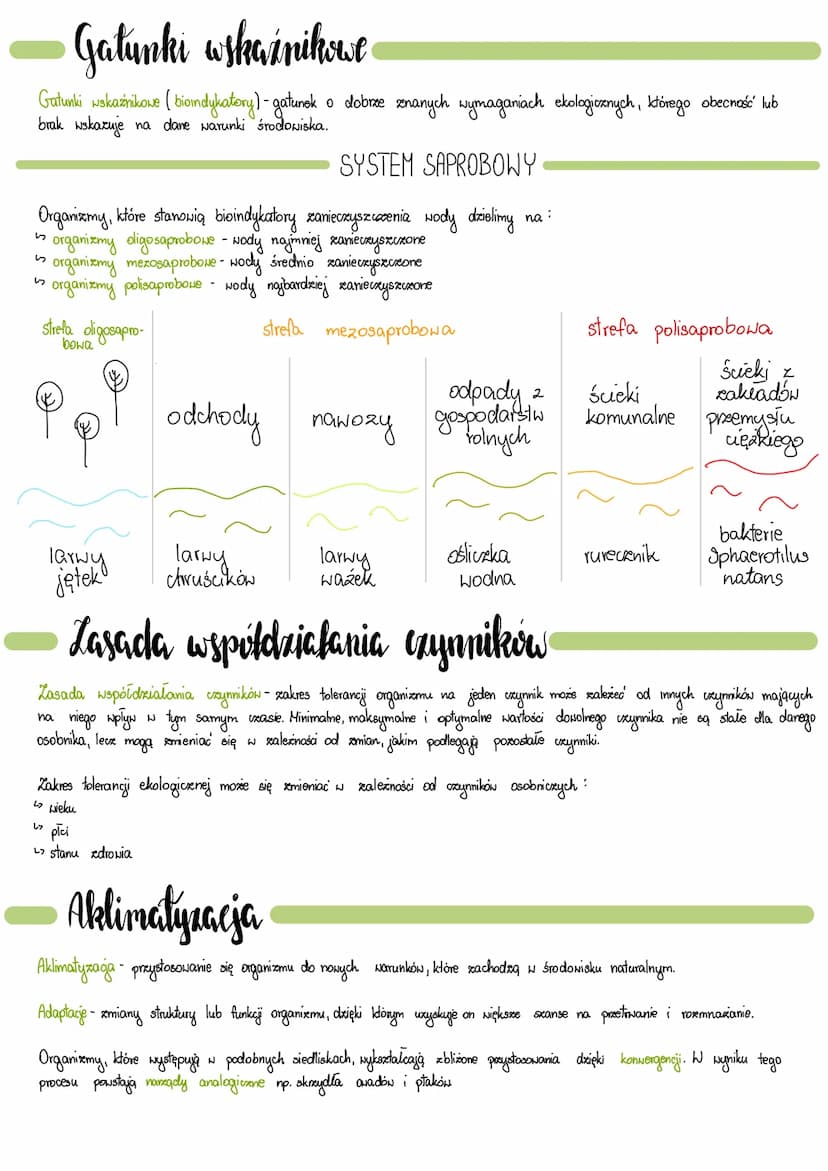 Gatunki wskaźnikowe
Gatunki wskaźnikowe (bioindykatory) - gatunek o dobrze znanych wymaganiach ekologicznych, którego obecność lub
brak wskazuje na dane warunki środowiska.
SYSTEM SAPROBOWY
Organizmy, które stanowią bioindykatory zanieczyszczenia wody dzielimy na:
↳ organizmy oligosaprobowe - wody najmniej zanieczyszczone
↳ organizmy mezosaprobowe - wody średnio zanieczyszczone
↳ organizmy polisaprobowe - wody najbardziej zanieczyszczone
strefa oligosapro-
bowa
strefa mezosaprobowa
strefa polisaprobowa
odchody
nawozy
odpady z
gospodarstw
rolnych
ścieki
komunalne
ścieki z
zakładów
przemysłu
ciężkiego
larwy
jętek
larwy
chruścików
larwy
ważek
ośliczka
wodna
rurecznik
bakterie
Sphaerotilus
natans
Zasada współdziałania czynników
Zasada współdziałania czynników - zakres tolerancji organizmu na jeden czynnik może zależeć od innych czynników mających
na niego wpływ w tym samym czasie. Minimalne, maksymalne i optymalne wartości dowolnego czynnika nie są stałe dla danego
osobnika, lecz mogą zmieniać się w zależności od zmian, jakim podlegają pozostałe czynniki.
Zakres tolerancji ekologicznej może się zmieniać w zależności od czynników osobniczych:
↳ wieku
↳ płci
↳ stanu zdrowia
Aklimatyzacja
Aklimatyzacja - przystosowanie się organizmu do nowych warunków, które zachodzą w środowisku naturalnym.
Adaptacje - zmiany struktury lub funkcji organizmu, dzięki którym uzyskuje on większe szanse na przetrwanie i rozmnażanie.
Organizmy, które występują w podobnych siedliskach, wykształcają zbliżone przystosowania dzięki konwergencji. W wyniku tego
procesu powstają narządy analogiczne np. skrzydła owadów i ptaków